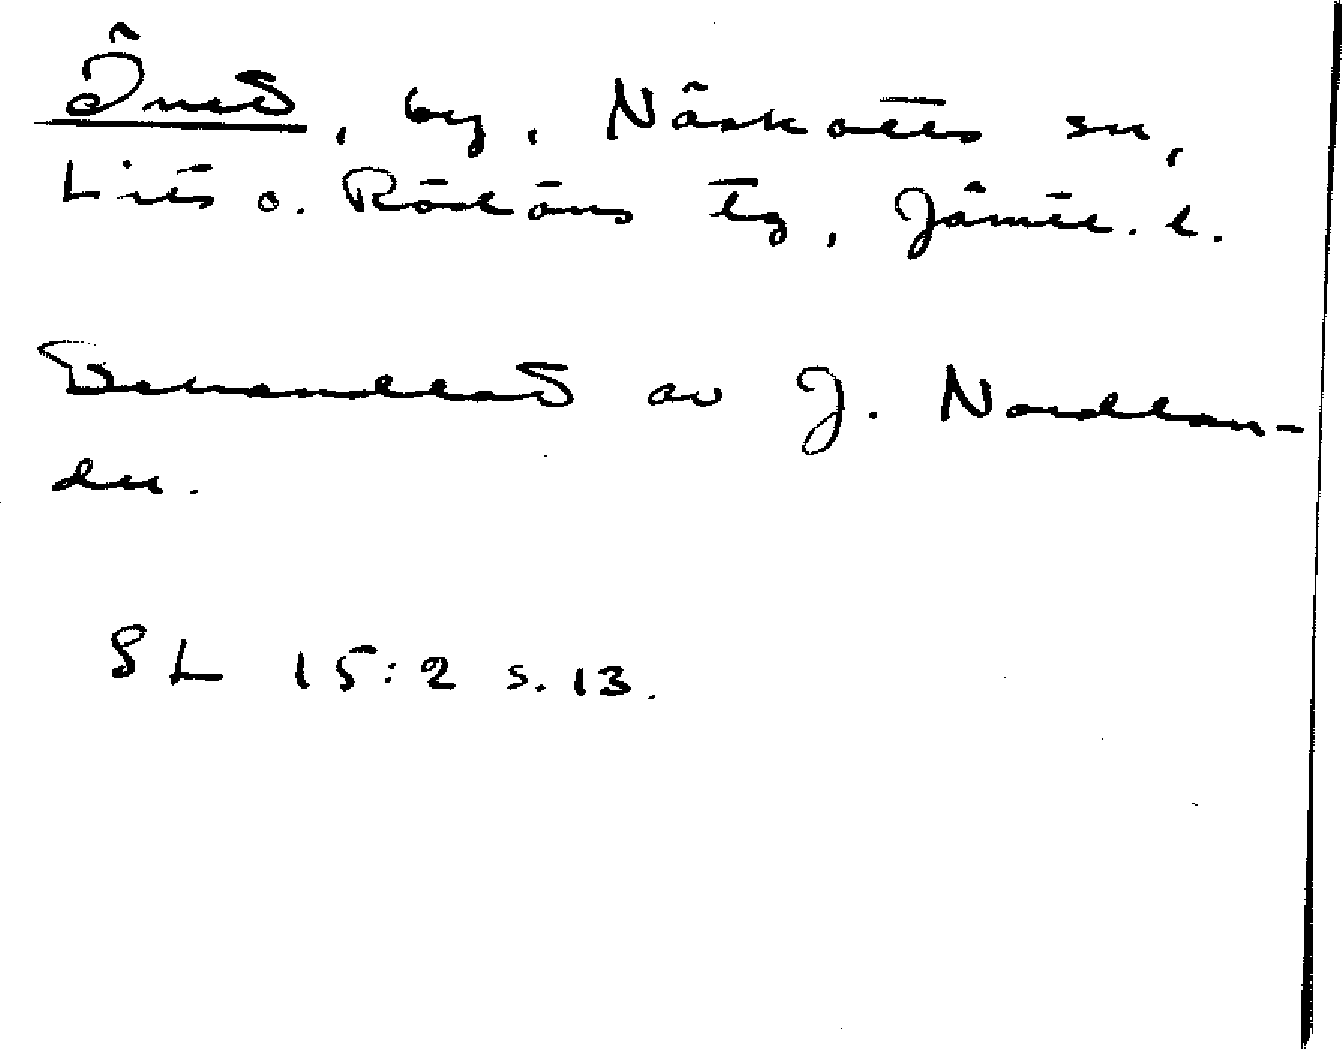 Öned, by, Näskotts sn,
Lits o. Rödöns tg, Jämtl. l.
Behandlad av J. Nordlan-
der.
SL 15:2 s. 13.